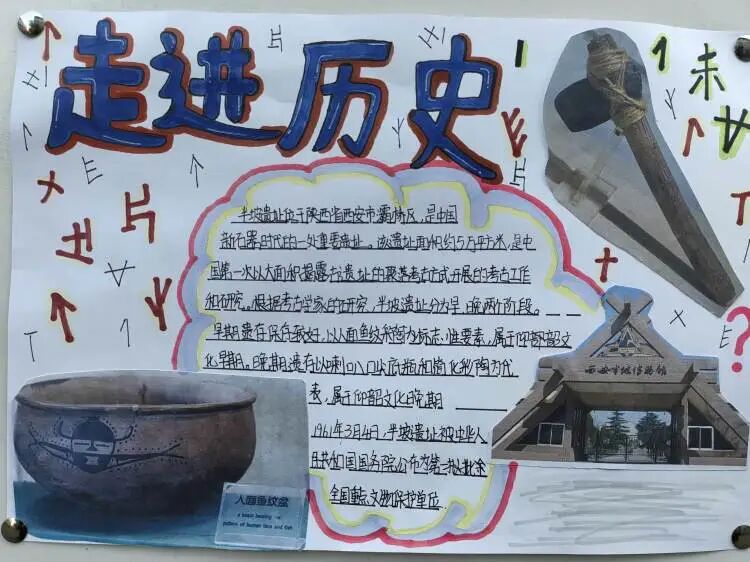 走进历史
半坡遗址位于陕西省西安市灞桥区,是中国
新石器时代的一处重要遗址。该遗址面积约5万平方米,是中
国第一次以大面积揭露 遗址的聚落考古方式开展的考古工作
和研究。根据考古学家的研究,半坡遗址分为早、晚两个阶段。
早期遗存保存较好,以人面鱼纹彩陶为标志性要素,属于仰韶文
化早期。晚期遗存以喇叭口尖底瓶和简化彩陶为代
表,属于仰韶文化晚期
1961年3月4日,半坡遗址被中华人
民共和国国务院公布为第一批
全国重点文物保护单位
西安半坡博物馆
人面鱼纹盆
a basin bearing
pattern of human face and fish